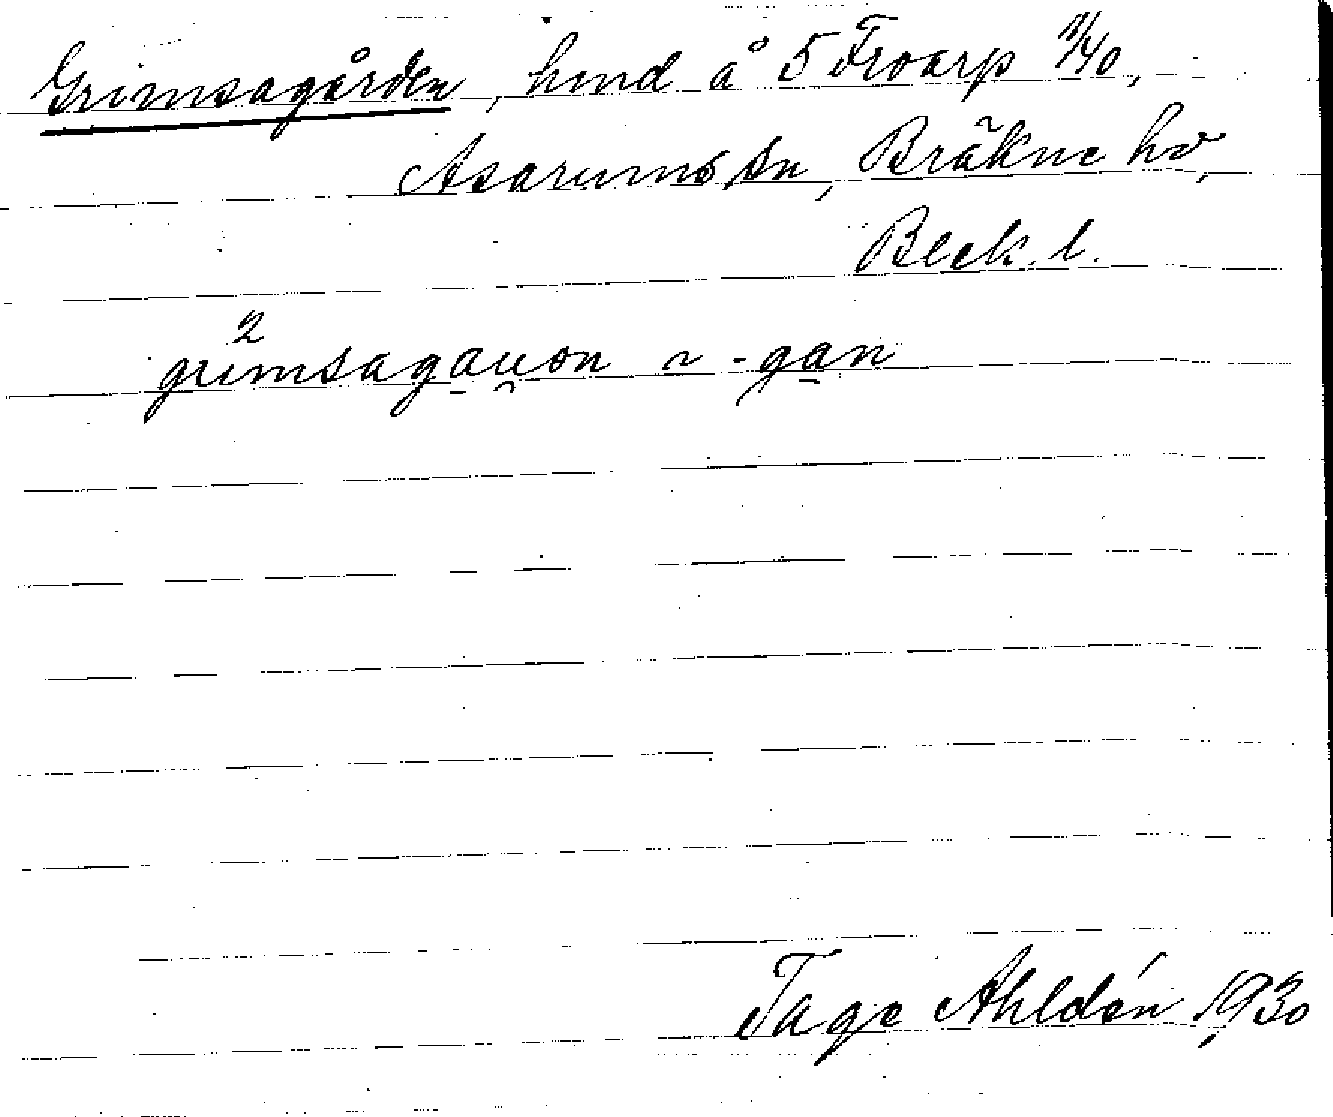 Grimsagården, hmd å 5 Froarp 11/40,
Asarums sn, Bräkne hd,
Bleck. l.
2
grimsagau̯ən ~ -gan
Tage Ahldén 1930